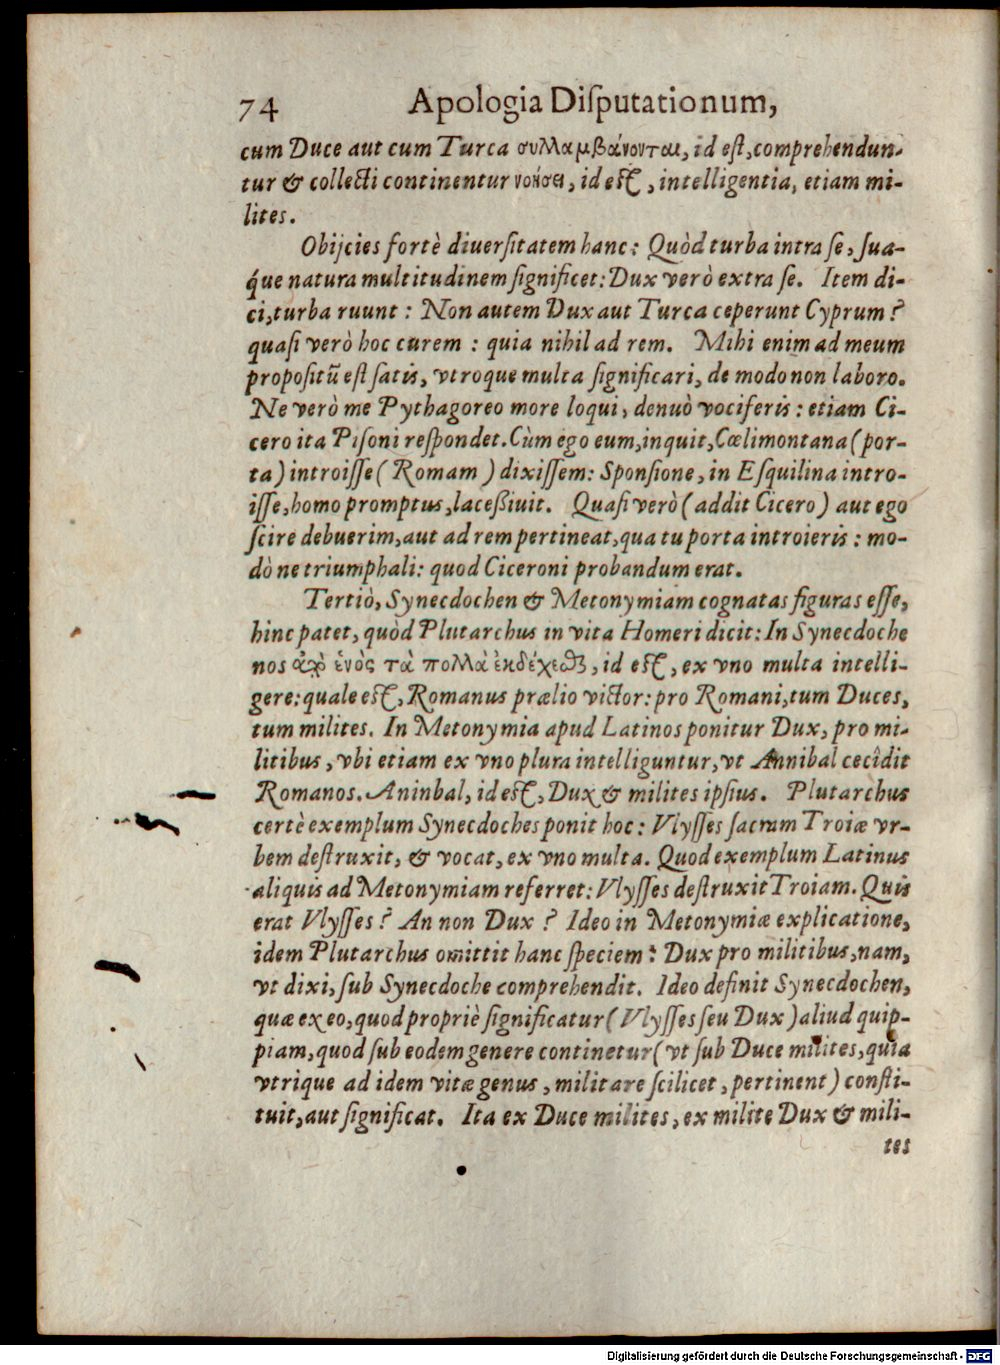 74 Apologia Diſputationum,
cum Duce aut cum Turca συλλαμβάνονται, id eſt, comprehendun-
tur & collecti continentur νοήσει, id eſt, intelligentia, etiam mi-
lites.
Obijcies fortè diuerſitatem hanc: Quòd turba intra ſe, ſua-
q́ue natura multitudinem ſignificet: Dux verò extra ſe. Item di-
ci, turba ruunt: Non autem Dux aut Turca ceperunt Cyprum?
quaſi verò hoc curem: quia nihil ad rem. Mihi enim ad meum
propoſitũ eſt ſatis, vtroque multa ſignificari, de modo non laboro.
Ne verò me Pythagoreo more loqui, denuò vociferis: etiam Ci-
cero ita Piſoni reſpondet. Cùm ego eum, inquit, Cœlimontana (por-
ta) introiſſe (Romam) dixiſſem: Sponſione, in Eſquilina intro-
iſſe, homo promptus, laceßiuit. Quaſi verò (addit Cicero) aut ego
ſcire debuerim, aut ad rem pertineat, qua tu porta introieris: mo-
dò ne triumphali: quod Ciceroni probandum erat.
Tertiò, Synecdochen & Metonymiam cognatas figuras eſſe,
hinc patet, quòd Plutarchus in vita Homeri dicit: In Synecdoche
nos ἀπὸ ἑνὸς τὰ πολλὰ ἐκδέχεσθαι, id eſt, ex vno multa intelli-
gere: quale eſt, Romanus prælio victor: pro Romani, tum Duces,
tum milites. In Metonymia apud Latinos ponitur Dux, pro mi-
litibus, vbi etiam ex vno plura intelliguntur, vt Annibal cecîdit
Romanos. Aninbal, id eſt, Dux & milites ipſius. Plutarchus
certè exemplum Synecdoches ponit hoc: Vlyſſes ſacram Troiæ vr-
bem deſtruxit, & vocat, ex vno multa. Quod exemplum Latinus
aliquis ad Metonymiam referret: Vlyſſes deſtruxit Troiam. Quis
erat Vlyſſes? An non Dux? Ideo in Metonymiæ explicatione,
idem Plutarchus omittit hanc ſpeciem: Dux pro militibus, nam,
vt dixi, ſub Synecdoche comprehendit. Ideo definit Synecdochen,
quæ ex eo, quod propriè ſignificatur (Vlyſſes ſeu Dux) aliud quip-
piam, quod ſub eodem genere continetur (vt ſub Duce milites, quia
vtrique ad idem vitæ genus, militare ſcilicet, pertinent) conſti-
tuit, aut ſignificat. Ita ex Duce milites, ex milite Dux & mili-
tes
Digitalisierung gefördert durch die Deutsche Forschungsgemeinschaft - DFG